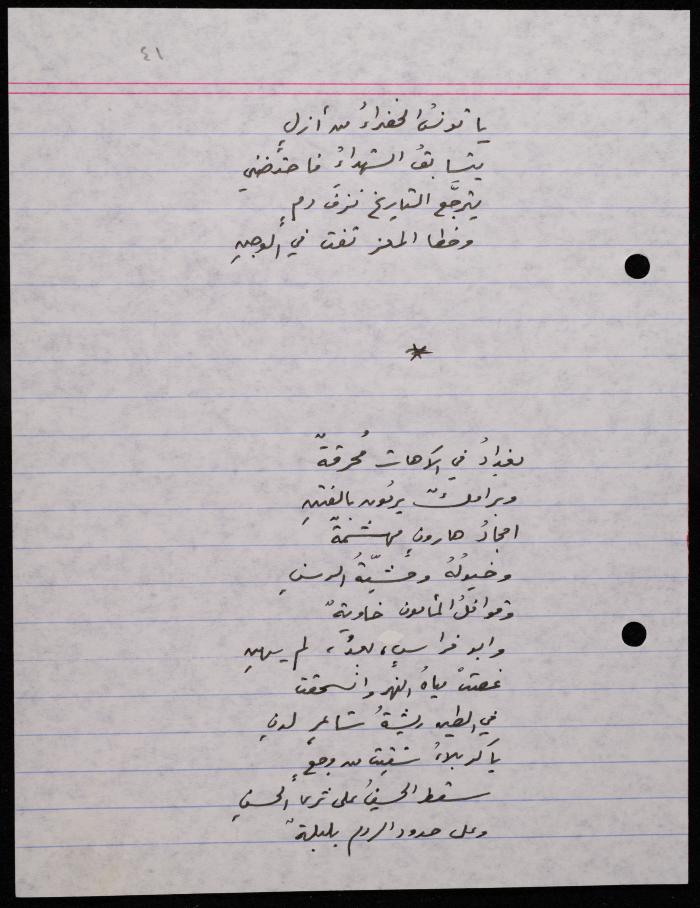 ٤١
يا تونسُ الخضراءُ من أزلٍ
يتسابقُ الشهداءُ فاحتضني
يترجَّع التاريخ نزفَ دمٍ
وخطا المعز تفت في الوجنِ
*
بغدادُ في الآهات مُحرقةٌ
وبرامكٌ يرمون بالفتنِ
امجادُ هارونٍ مهشمةٌ
وخيولُهُ وحشيّةُ الرسنِ
وقوافلُ المأمون خاويةٌ
وابو فراسٍ، بعدُ، لم يهنِ
غصتْ مياهُ النهر وانسحقت
في الطين ريشةُ شاعرٍ لدنِ
يا كربلاءُ شقيتِ من وجعٍ
سقط الحسينُ على ثرى الحسنِ
وعلى حدود الروم بلبلةٌ